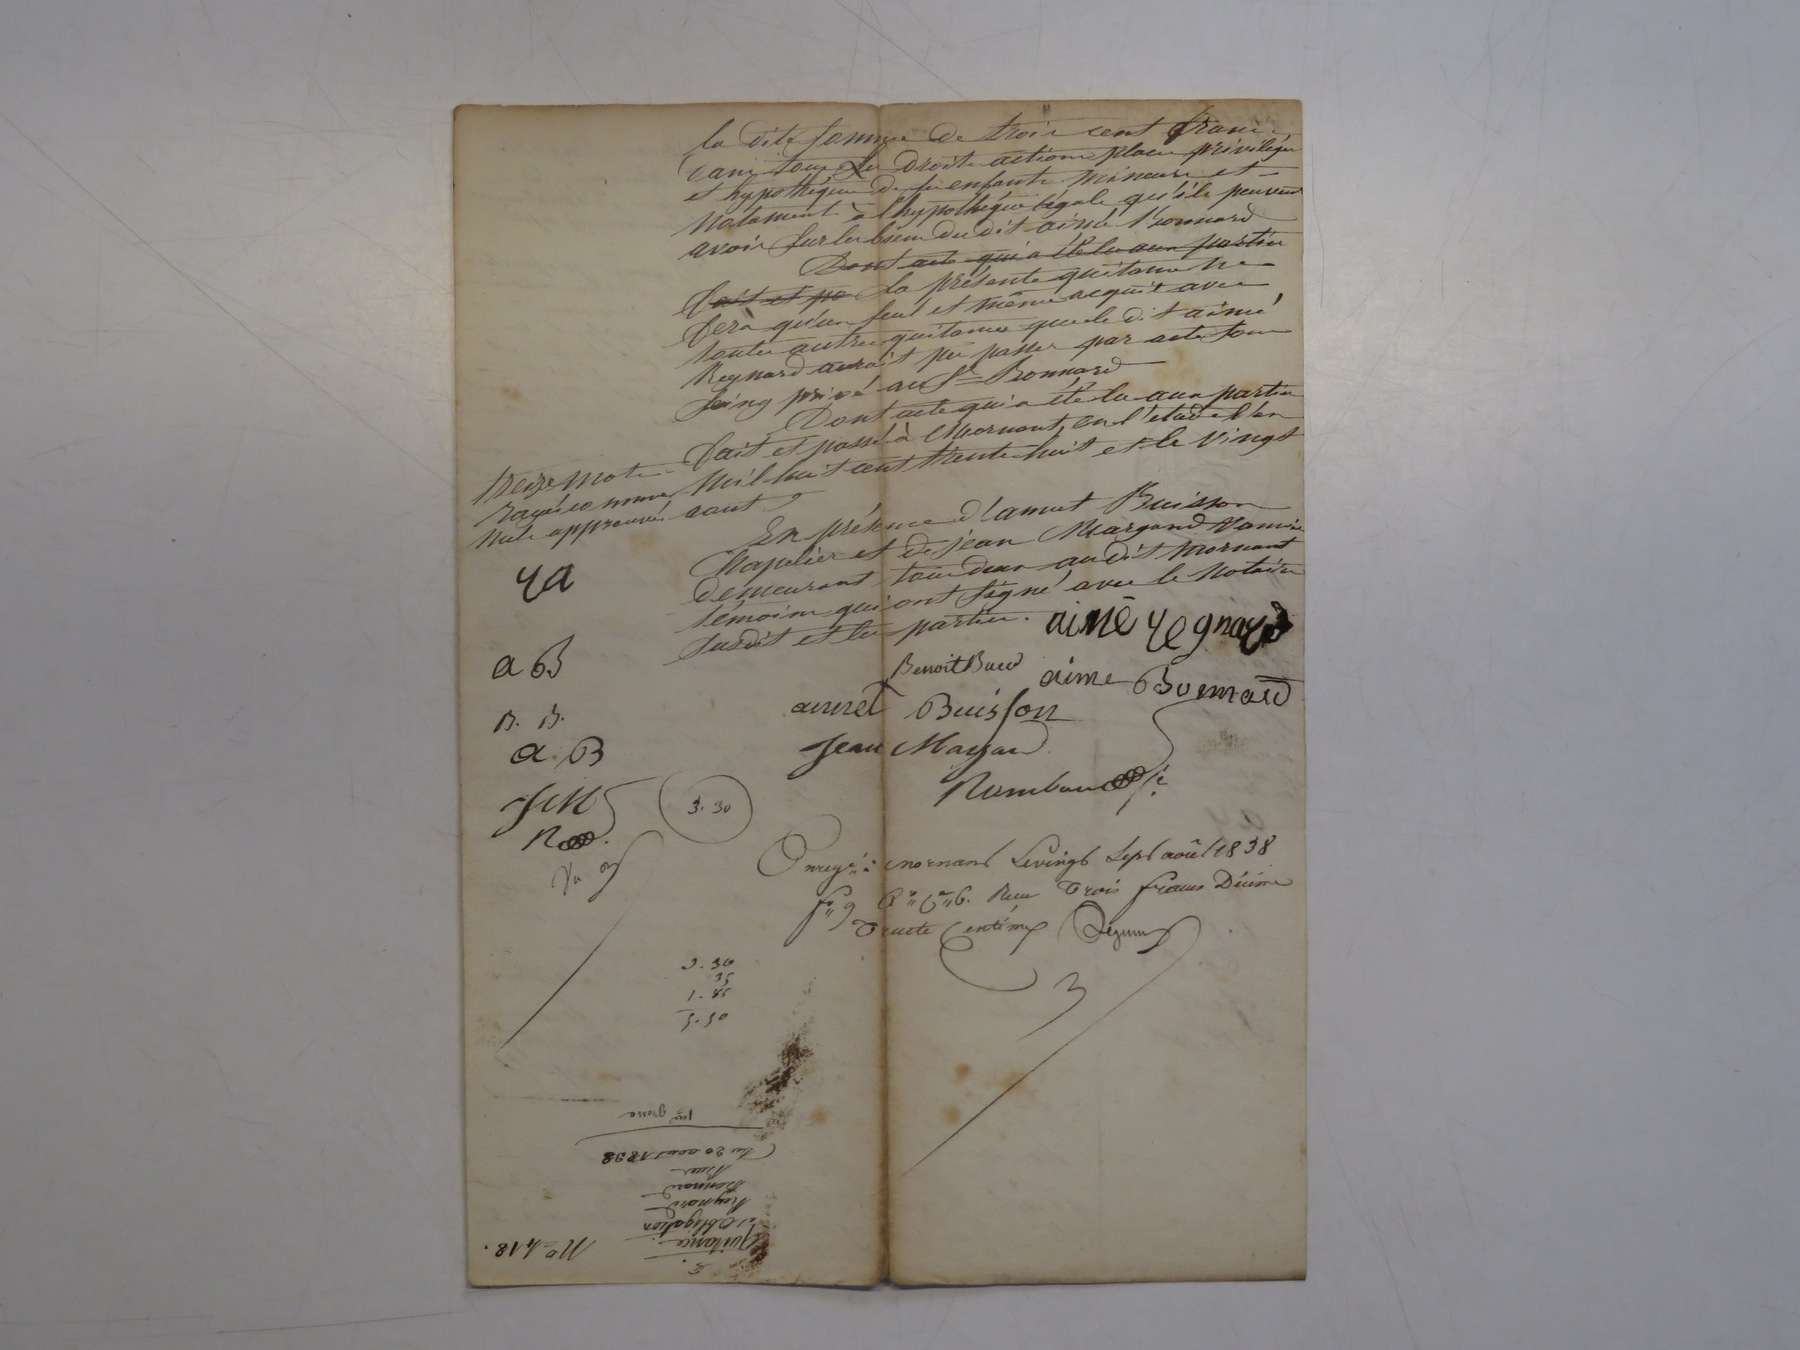 la dite somme de trois cent francs
dans tous les droits actions places privilèges
et hypothèques de ses enfants mineurs et
notament à l'hypothèque légale qu'ils peuvent
avoir sur les biens du dit aimé Bonnard
Dont acte qui a été lu aux parties
fait et pa La présente quitance ne
sera qu'un seul et même acquit avec
toutes autres quitances que le dit aimé
Reynard aurait pu passer par acte sous
seing privé au Sr Bonnard
Dont acte qui a été lu aux parties
fait et passé à Mornant, en l'étude l'an
mil huit cent trente huit et le vingt
aout
treize mots
rayés comme
nuls approuvés
En présence d'amet Buisson
Chapelier et de jean Margand
demeurant tous deux au dit Mornant
témoins qui ont signé avec le notaire
susdit et les parties.
ya
aimé yegnayd
a B
Benoit Bued
aime Bonnard
B. B.
aimet Buisson
a B
Jean Margand
JM
3.30
R
Enregé à mornant le vingt sept août 1838
fo 9 Ro Ce 6. Reçu Trois francs Décime
Trente Centimes
3.30
35
1.85
5.50
1re grosse
Du 20 aout 1838
Buer
Bonnard
Reynard
et Obligation
Quitance
No 418.